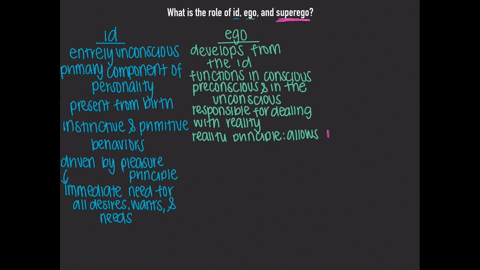 What is the role of id, ego, and superego?
id
entirely unconscious
primary component of
personality
present from birth
instinctive & primitive
behaviors
driven by pleasure
principle
immediate need for
all desires, wants, &
needs
ego
develops from
the id
functions in conscious
preconscious & in the
unconscious
responsible for dealing
with reality
reality principle: allows